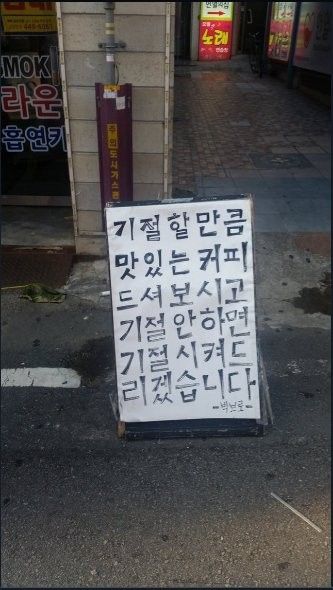 MOK
라운
흡연카
노래
주의 도시가스관
기절할만큼
맛있는 커피
드셔보시고
기절안하면
기절시켜드
리겠습니다
-빅브로-